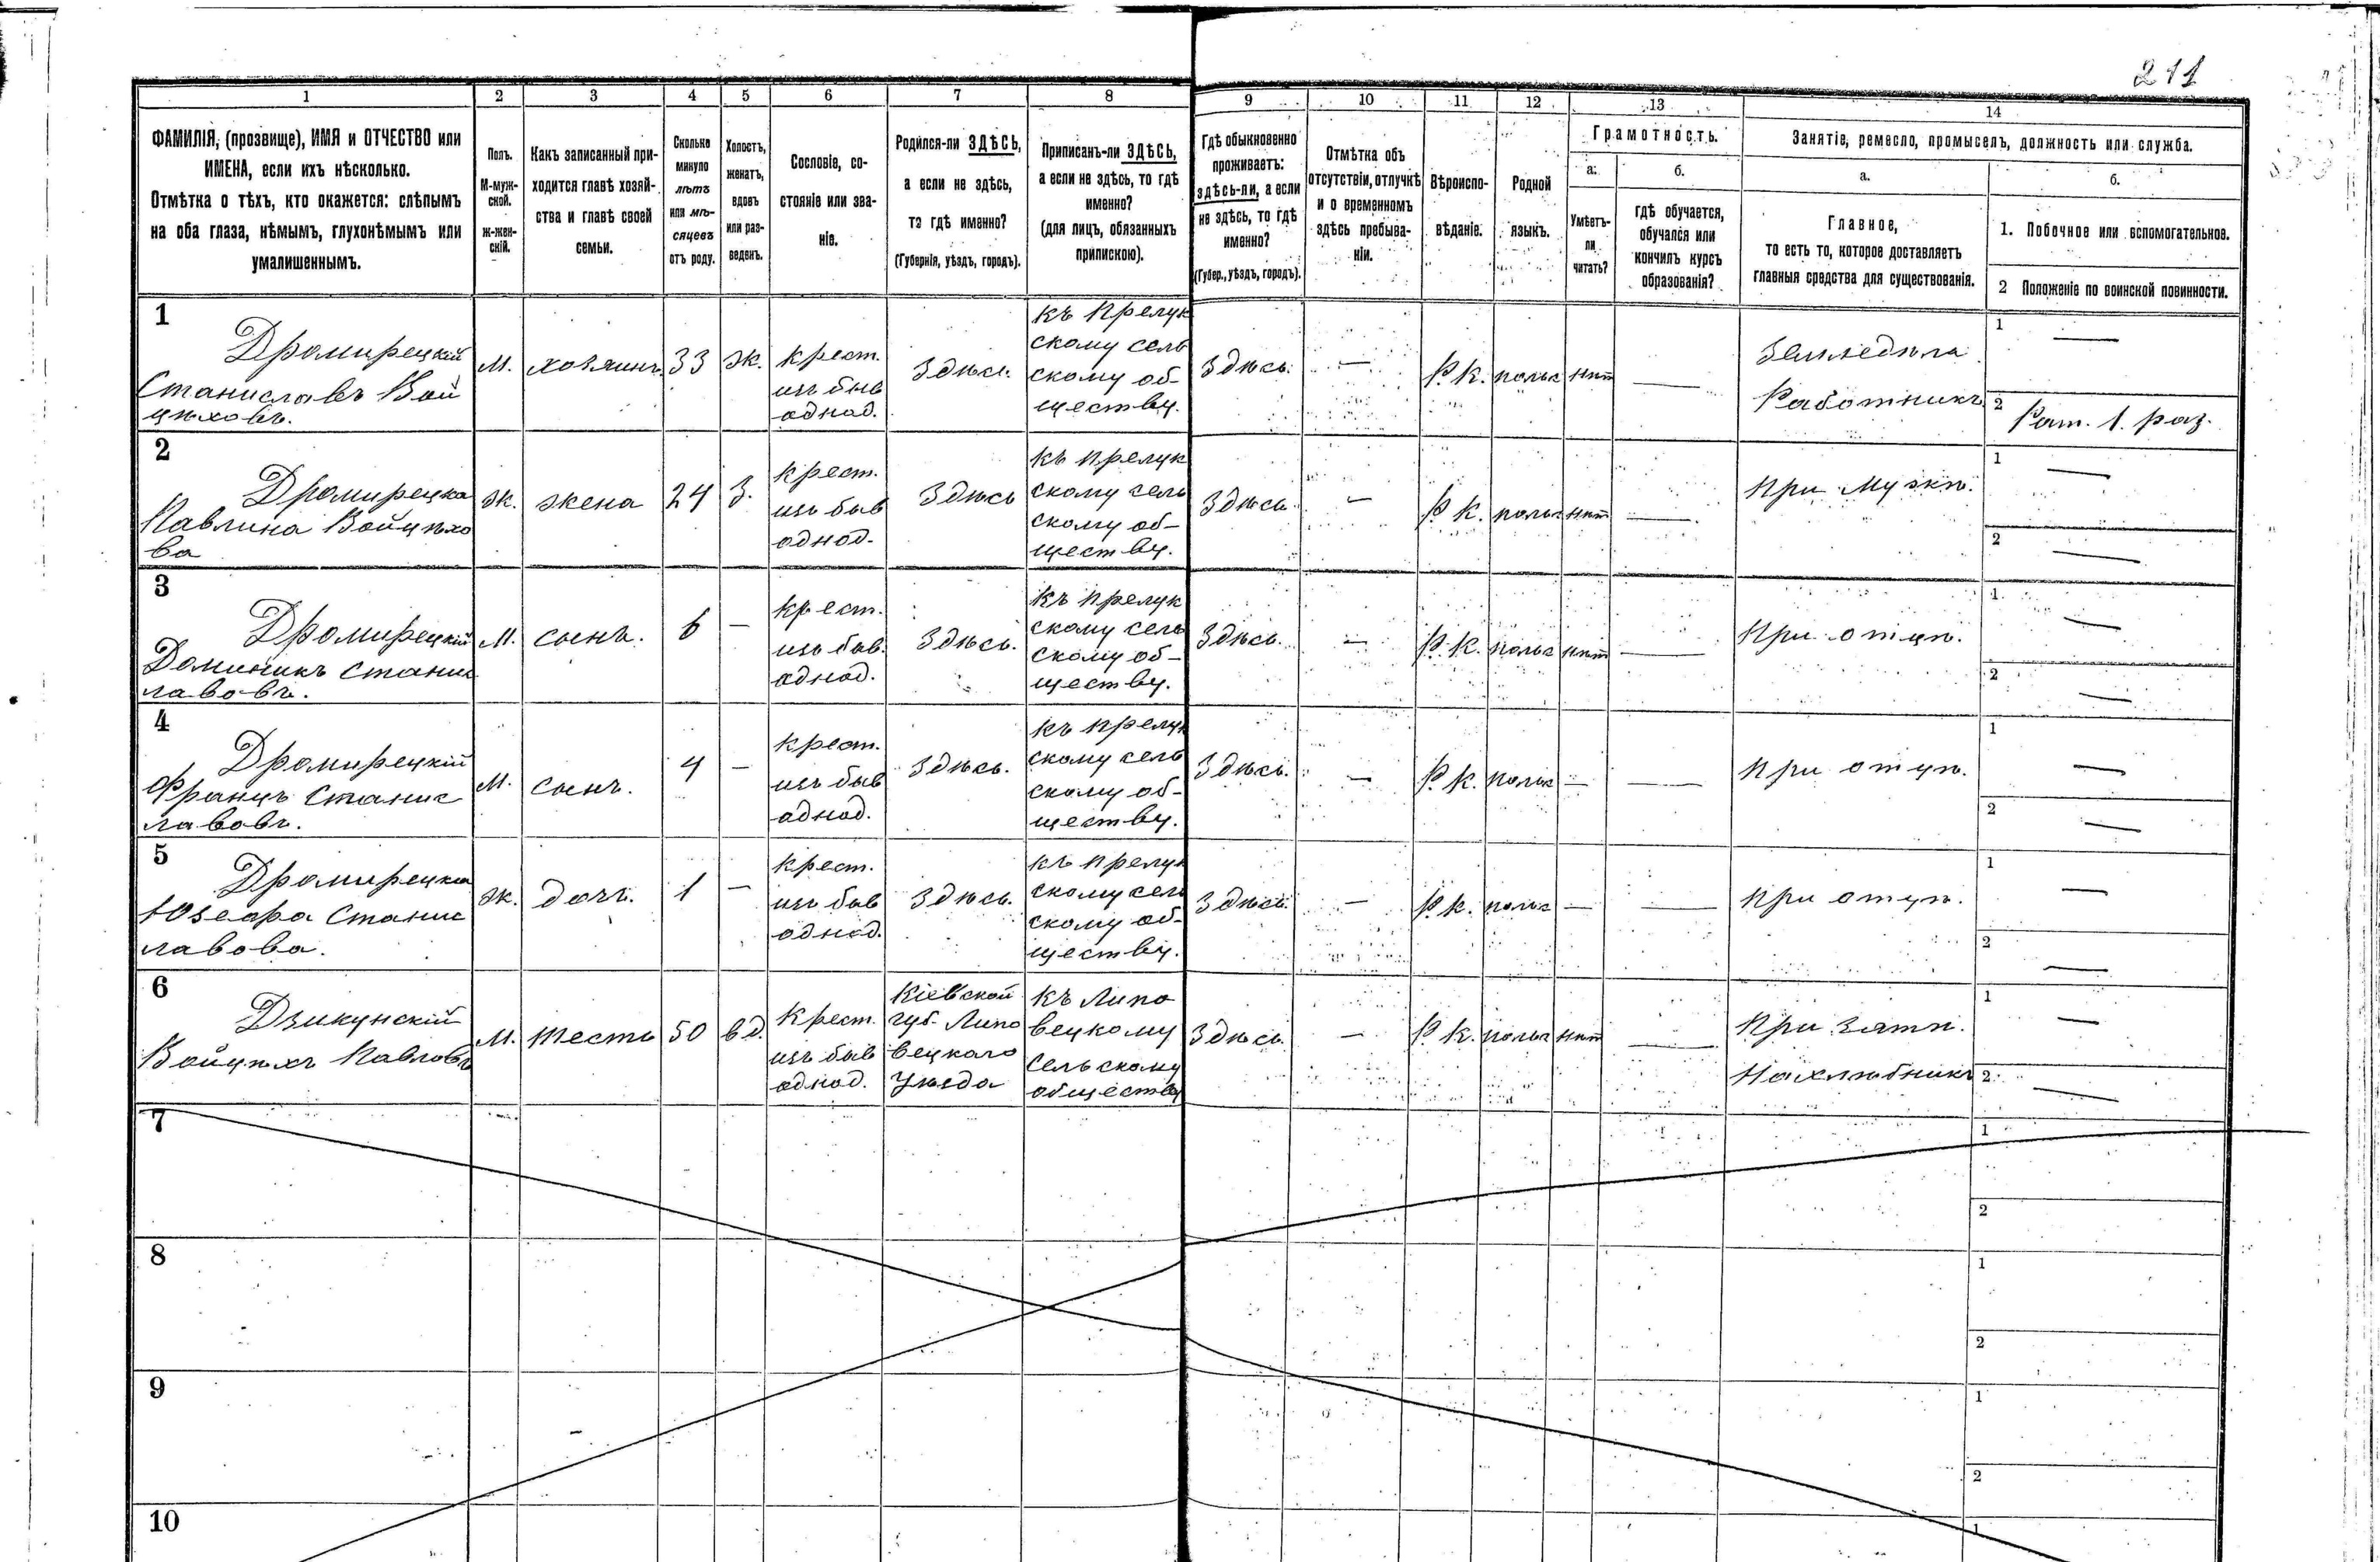 211
1 2 3 4 5 6 7 8 9 10 11 12 13 14
ФАМИЛІЯ, (прозвище), ИМЯ и ОТЧЕСТВО или
ИМЕНА, если ихъ нѣсколько.
Отмѣтка о тѣхъ, кто окажется: слѣпымъ
на оба глаза, нѣмымъ, глухонѣмымъ или
умалишеннымъ.
Полъ.
М-муж-
ской.
ж-жен-
скій.
Какъ записанный при-
ходится главѣ хозяй-
ства и главѣ своей
семьи.
Сколько
минуло
лѣтъ
или мѣ-
сяцевъ
отъ роду.
Холостъ,
женатъ,
вдовъ
или раз-
веденъ.
Сословіе, со-
стояніе или зва-
ніе.
Родился-ли ЗДѢСЬ,
а если не здѣсь,
то гдѣ именно?
(Губернія, уѣздъ, городъ).
Приписанъ-ли ЗДѢСЬ,
а если не здѣсь, то гдѣ
именно?
(для лицъ, обязанныхъ
припискою).
Гдѣ обыкновенно
проживаетъ:
здѣсь-ли, а если
не здѣсь, то гдѣ
именно?
(Губер., уѣздъ, городъ).
Отмѣтка объ
отсутствіи, отлучкѣ
и о временномъ
здѣсь пребыва-
ніи.
Вѣроиспо-
вѣданіе.
Родной
языкъ.
Грамотность.
а.
Умѣетъ-
ли
читать?
б.
гдѣ обучается,
обучался или
кончилъ курсъ
образованія?
Занятіе, ремесло, промыселъ, должность или служба.
а.
Главное,
то есть то, которое доставляетъ
главныя средства для существованія.
б.
1. Побочное или вспомогательное.
2 Положеніе по воинской повинности.
1
Дромирецкій
Станиславъ Вой
цѣховъ.
М.
хозяинъ
33
ж.
крест.
изъ быв
однод.
Здѣсь.
къ Прелук
скому сель
скому об-
ществу.
Здѣсь.
—
Р. К.
польс
нѣт
—
Земледѣла
Работникъ
1 —
2 Рат. 1. раз.
2
Дромирецка
Павлина Войцѣхо
ва
ж.
жена
24
З.
крест.
изъ быв
однод.
Здѣсь
къ прелук
скому сель
скому об-
ществу.
Здѣсь.
—
Р. К.
польс
нѣт
—
При мужѣ.
1 —
2 —
3
Дромирецкій
Доминикъ Станис
лавовъ.
М.
сынъ.
6
—
крест.
изъ быв.
однод.
Здѣсь.
къ прелук
скому сель
скому об-
ществу.
Здѣсь.
—
Р. К.
польс
нѣт
—
При отцѣ.
1 —
2 —
4
Дромирецкій
Францъ Станис
лавовъ.
М.
сынъ.
4
—
крест.
изъ быв
однод.
Здѣсь.
къ прелук
скому сель
скому об-
ществу.
Здѣсь.
—
Р. К.
польс
—
—
При отцѣ.
1 —
2 —
5
Дромирецка
Юзефа Станис
лавова.
ж.
дочь.
1
—
крест.
изъ быв
однод.
Здѣсь.
къ прелук
скому сель
скому об-
ществу.
Здѣсь.
—
Р. К.
польс
—
—
При отцѣ.
1 —
2 —
6
Дзикунскій
Войцѣхъ Павловъ
М.
тесть
50
вд.
крест.
изъ быв
однод.
Кіевской
губ. Липо
вецкаго
Уѣзда
къ Липо
вецкому
Сельскому
обществу
Здѣсь.
—
Р. К.
польс
нѣт
—
При зятѣ.
Нахлѣбникъ
1 —
2 —
7
1
2
8
1
2
9
1
2
10
1